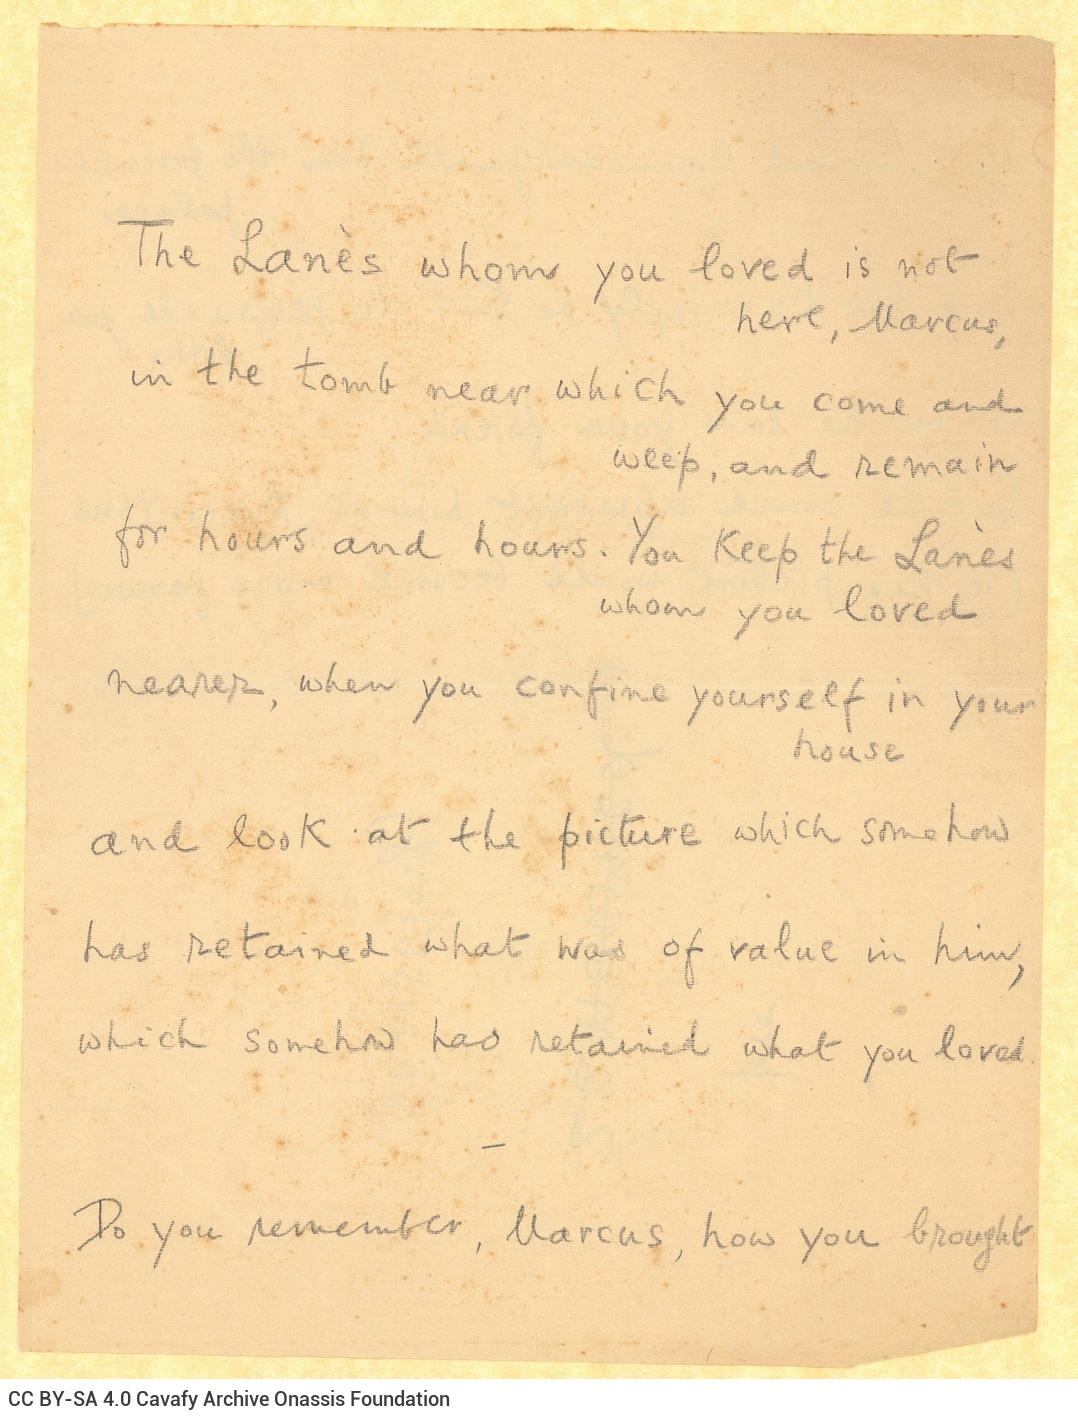 The Lanès whom you loved is not
here, Marcus,
in the tomb near which you come and
weep, and remain
for hours and hours. You keep the Lanès
whom you loved
nearer, when you confine yourself in your
house
and look at the picture which somehow
has retained what was of value in him,
which somehow has retained what you loved.
—
Do you remember, Marcus, how you brought
CC BY-SA 4.0 Cavafy Archive Onassis Foundation